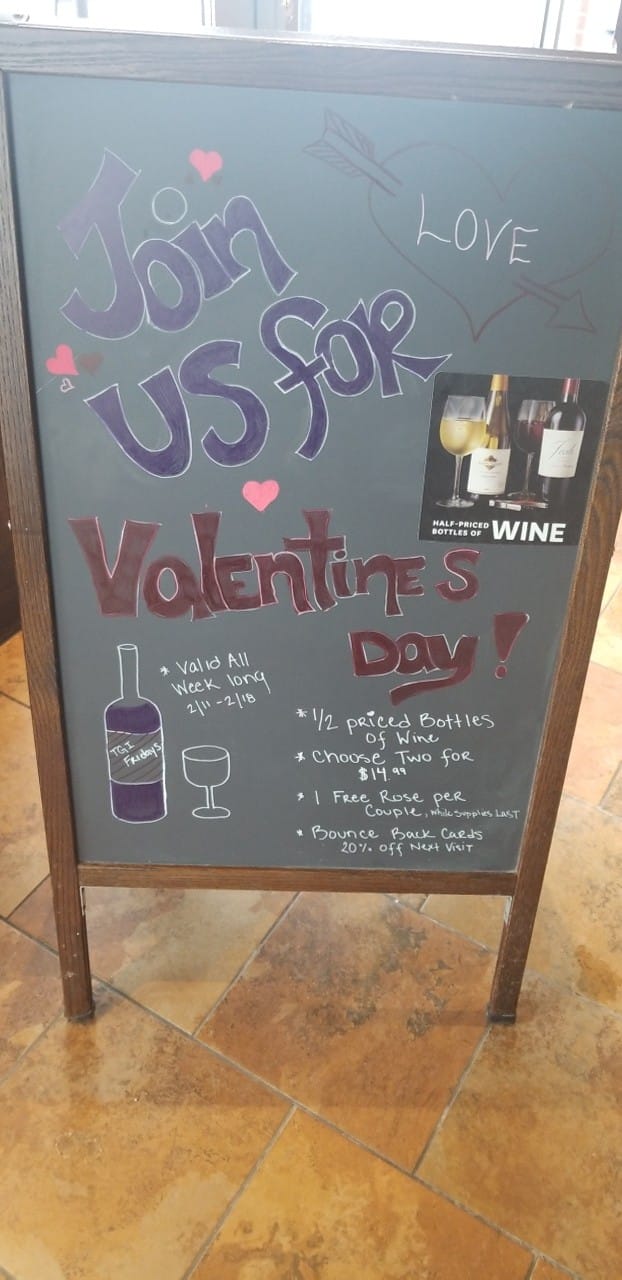 Join
LOVE
us for
HALF-PRICED
BOTTLES OF WINE
Valentines
Day!
* Valid All
Week long
2/11 - 2/18
TGI
Fridays
* 1/2 priced Bottles
of Wine
* Choose Two for
$14.99
* 1 Free Rose per
Couple, while supplies LAST
* Bounce Back Cards
20% off Next Visit